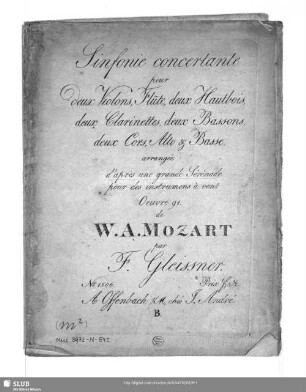 Sinfonie concertante
pour
deux Violons, Flûte, deux Hautbois,
deux Clarinettes, deux Bassons,
deux Cors, Alto & Basse,
arrangée
d'après une grande Sérénade
pour des instrumens à vent
Oeuvre 91.
de
W.A. MOZART
par
F. Gleissner.
No 1506. Prix
A Offenbach s/M, chez J. André.
B.
(m²)
Mus. 3972-N-
SLUB
Wir führen Wissen.